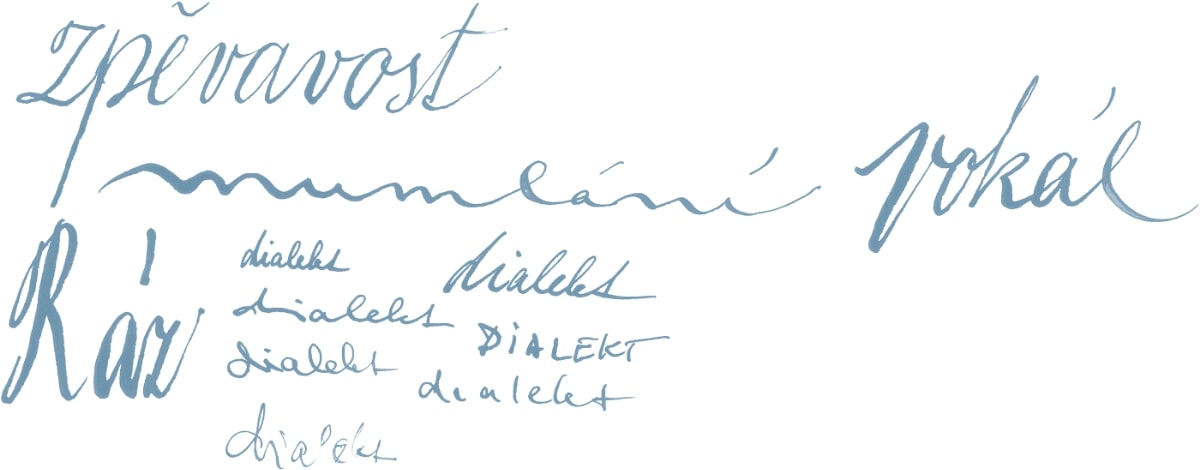 zpěvavost
mumlání
vokál
Ráz
dialekt
dialekt
dialekt
DiALEKT
dialekt
dialekt
dialekt